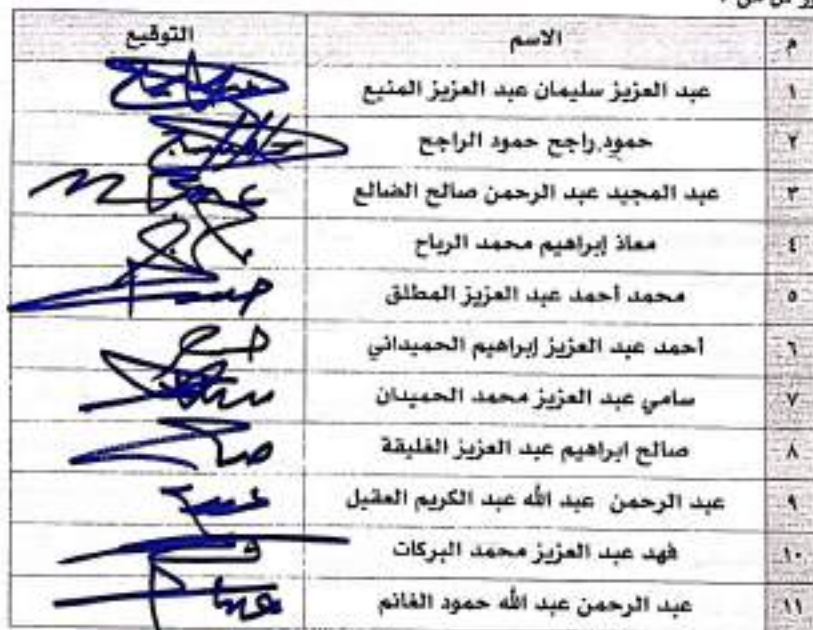 م الاسم التوقيع
١ عبد العزيز سليمان عبد العزيز المنيع
٢ حمود راجح حمود الراجح
٣ عبد المجيد عبد الرحمن صالح الضالع
٤ معاذ إبراهيم محمد الرباح
٥ محمد أحمد عبد العزيز المطلق
٦ أحمد عبد العزيز إبراهيم الحميداني
٧ سامي عبد العزيز محمد الحميدان
٨ صالح ابراهيم عبد العزيز الغليقة
٩ عبد الرحمن عبد الله عبد الكريم العقيل
١٠ فهد عبد العزيز محمد البركات
١١ عبد الرحمن عبد الله حمود الغانم